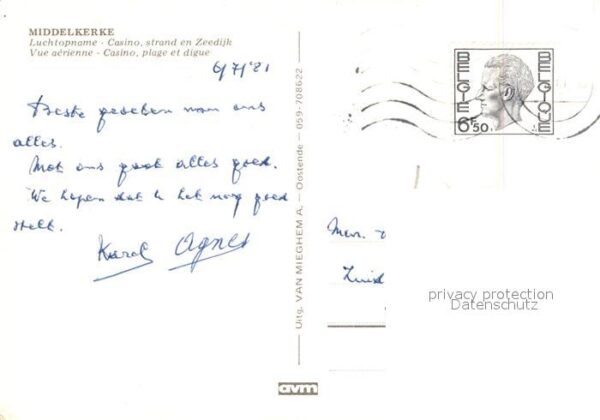 MIDDELKERKE
Luchtopname - Casino, strand en Zeedijk
Vue aérienne - Casino, plage et digue
6/7/'81
Beste groeten van ons
alles.
Met ons gaat alles goed.
We hopen dat u het nog goed
stelt.
Karel Agnes
Uitg. VAN MIEGHEM A. - Oostende - 059-708622
BELGIE
BELGIQUE
6F50
Mevr.
Zuid
privacy protection
Datenschutz
avm